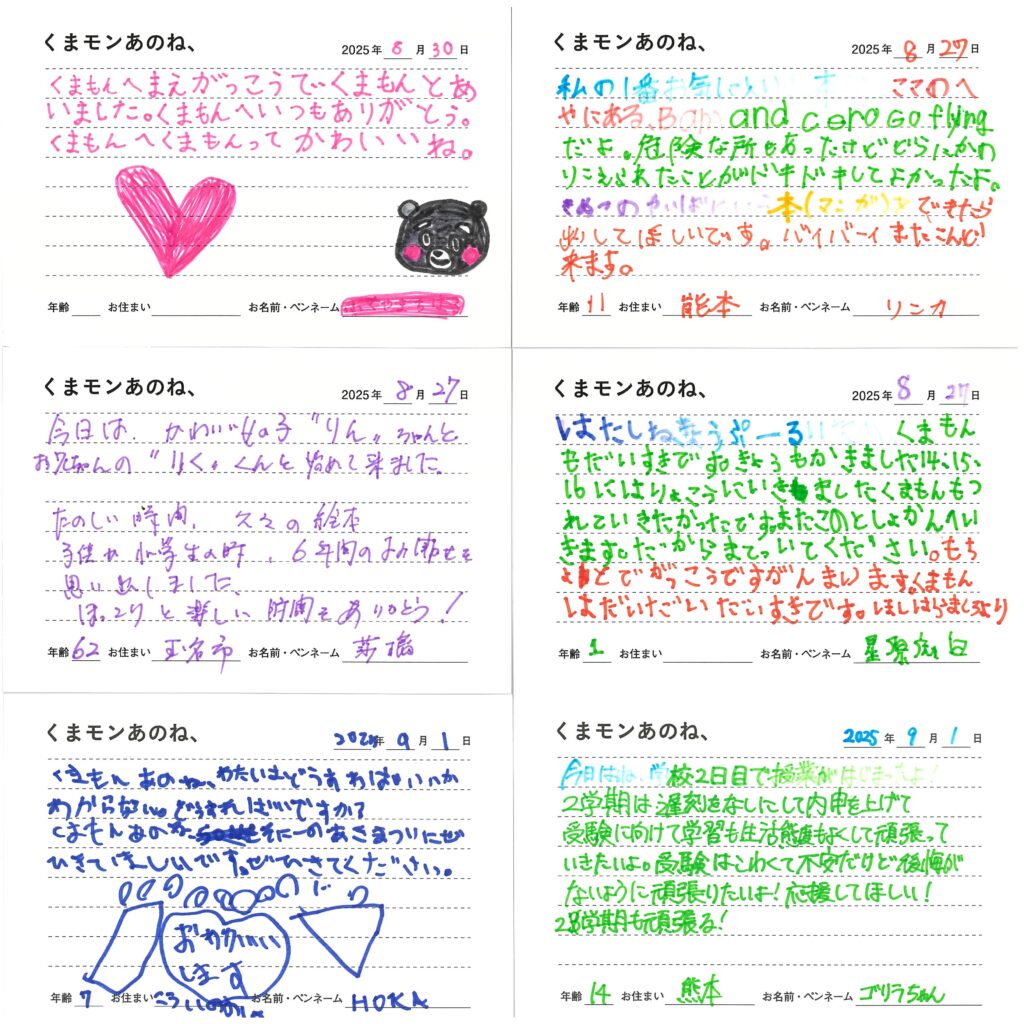 くまモンあのね、
2025年 8 月 30 日
くまもんへまえがっこうでくまもんとあ
いました。くまもんへいつもありがとう。
くまもんへくまもんってかわいいね。
年齢 お住まい お名前・ペンネーム
くまモンあのね、
2025年 8 月 27 日
私の1番お気に入 す ママのへ
やにある、 and cero Go flying
だよ。危険な所もあったけどどらにかわ
りこえられたことがドキドキしてよかったよ。
本(マンガ)を できたら
出してほしいです。バイバーイ またこんど
来ます。
年齢 11 お住まい 熊本 お名前・ペンネーム リンカ
くまモンあのね、
2025年 8 月 27 日
今日は、かわいい女の子〝りん〟ちゃんと
お兄ちゃんの〝りく〟くんと始めて来ました。
たのしい時間、久々の絵本
子供が小学生の時、6年間のよみ聞せを
思い出しました。
ほっこりと楽しい時間をありがとう!
年齢 62 お住まい 玉名市 お名前・ペンネーム
くまモンあのね、
2025年 8 月 27 日
はたしねきょうぷーる くまもん
もだいすきです。きょうもかきました14、15、
16にはりょこうにいきましたくまもんもつ
れていきたかったです。またこのとしょかんへい
きます。だからまっていてください。もち
ょとでがっこうですがんまります。くまもん
はだいだいだいすきです。
年齢 1 お住まい お名前・ペンネーム
くまモンあのね、
2025年 9 月 1 日
くまもんあのね、わたしはどうすればいいか
わからない。どうすればいいですか?
くまもんあのね、 そにーのあきまつりにぜ
ひきてほましいです。ぜひきてください。
おねがい
します
年齢 7 お住まい お名前・ペンネーム HOKA
くまモンあのね、
2025 年 9 月 1 日
今日はね、学校2日目で授業がはじまったよ!
2学期は遅刻をなしにして内申を上げて
受験に向けて学習も生活態度もよくして頑張って
いきたいよ。受験はこわくて不安だけど後悔が
ないように頑張りたいよ!応援してほしい!
2学期も頑張る!
年齢 14 お住まい 熊本 お名前・ペンネーム ゴリラちゃん